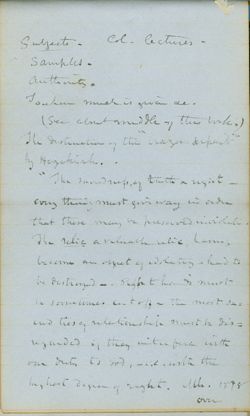 Subjects - Col. Lectures -
Samples -
Authority.
To whom much is given &c.
(See about middle of this book.)
The destruction of the
by Hezekiah.
"The of truth & right -
must give way in order
that these may be preserved inviolate.
The relic, a valuable relic, having
become an object of idolatry had to
be destroyed - Right hands must
be sometimes cut off & the most
ties of relationship must be dis-
regarded if they interfere with
our duty to God, and with the
highest degree of right. 1898
over